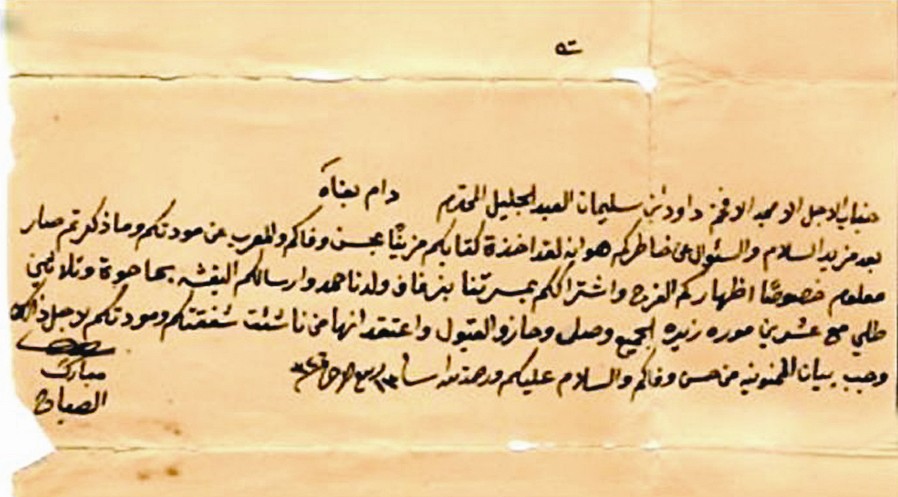 جناب الاجل الامجد الافخم داود بن سليمان العبد الجليل المحترم دام بقاه
بعد مزيد السلام والسئوال عن خاطركم هو انه لقد اخذة كتابكم مزينًا بحسن وفاكم والمعرب عن مودتكم وما ذكرتم صار
معلوم خصوصًا اظهاركم الفرح واشتراككم بمسرتنا بزفاف ولدنا حمد وارسالكم البقشه بها حوة وثلاثين
طلي مع عشرين موره زيره الجميع وصل وحاز والقبول واعتقد انها من ناشئت شفقتكم ومودتكم لاجل ذالك
وجب بيان الممنونيه من حسن وفاكم والسلام عليكم ورحمة الله ربيع
مبارك
الصباح